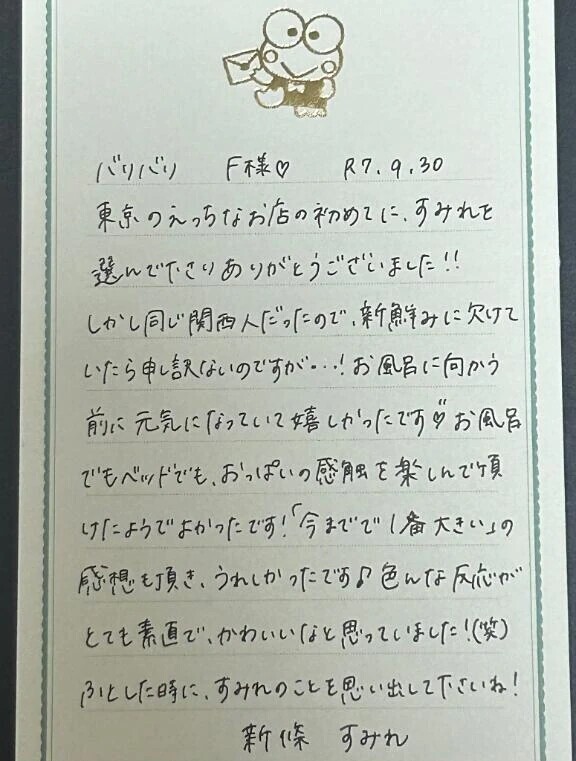 バリバリ F様♡ R7.9.30
東京のえっちなお店の初めてに、すみれを
選んで下さりありがとうございました!!
しかし同じ関西人だったので、新鮮みに欠けて
いたら申し訳ないのですが…!お風呂に向かう
前に元気になっていて嬉しかったです♡お風呂
でもベッドでも、おっぱいの感触を楽しんで頂
けたようでよかったです!「今までで1番大きい」の
感想も頂き、うれしかったです♪色んな反応が
とても素直で、かわいいなと思っていました!(笑)
ふとした時に、すみれのことを思い出して下さいね!
新條 すみれ